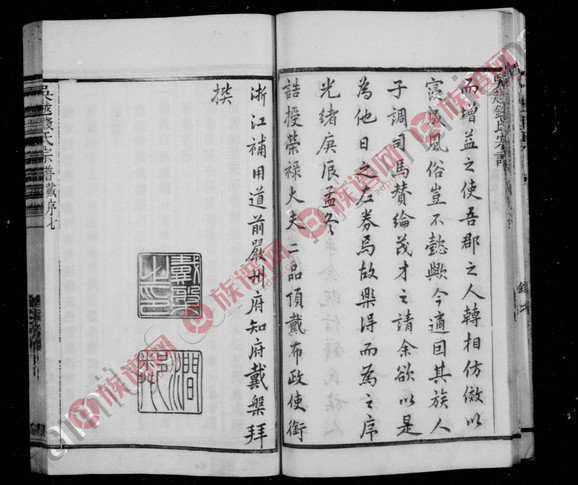 而增益之使吾郡之人轉相仿傚以
宮成風俗豈不懿歟今適因其族人
子調司馬贊綸茂才之請余欲以是
為他日之左券焉故樂得而為之序
光緒庚辰孟冬
誥授榮祿大夫二品頂戴布政使銜
浙江補用道前嚴州府知府戴槃拜
撰
戴槃之印
澗鄰
吳越錢氏宗譜戴序七
族譜网